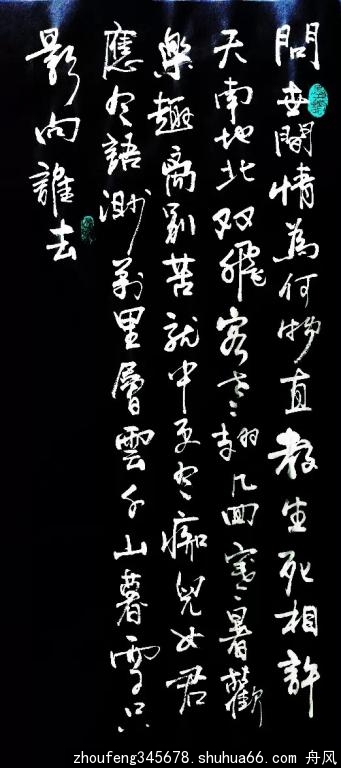 問世間情為何物直教生死相許
天南地北双飛客老翅几回寒暑歡
樂趣离別苦就中更有痴兒女君
應有語渺萬里層雲千山暮雪只
影向誰去
zhoufeng345678.shuhua66.com 舟风